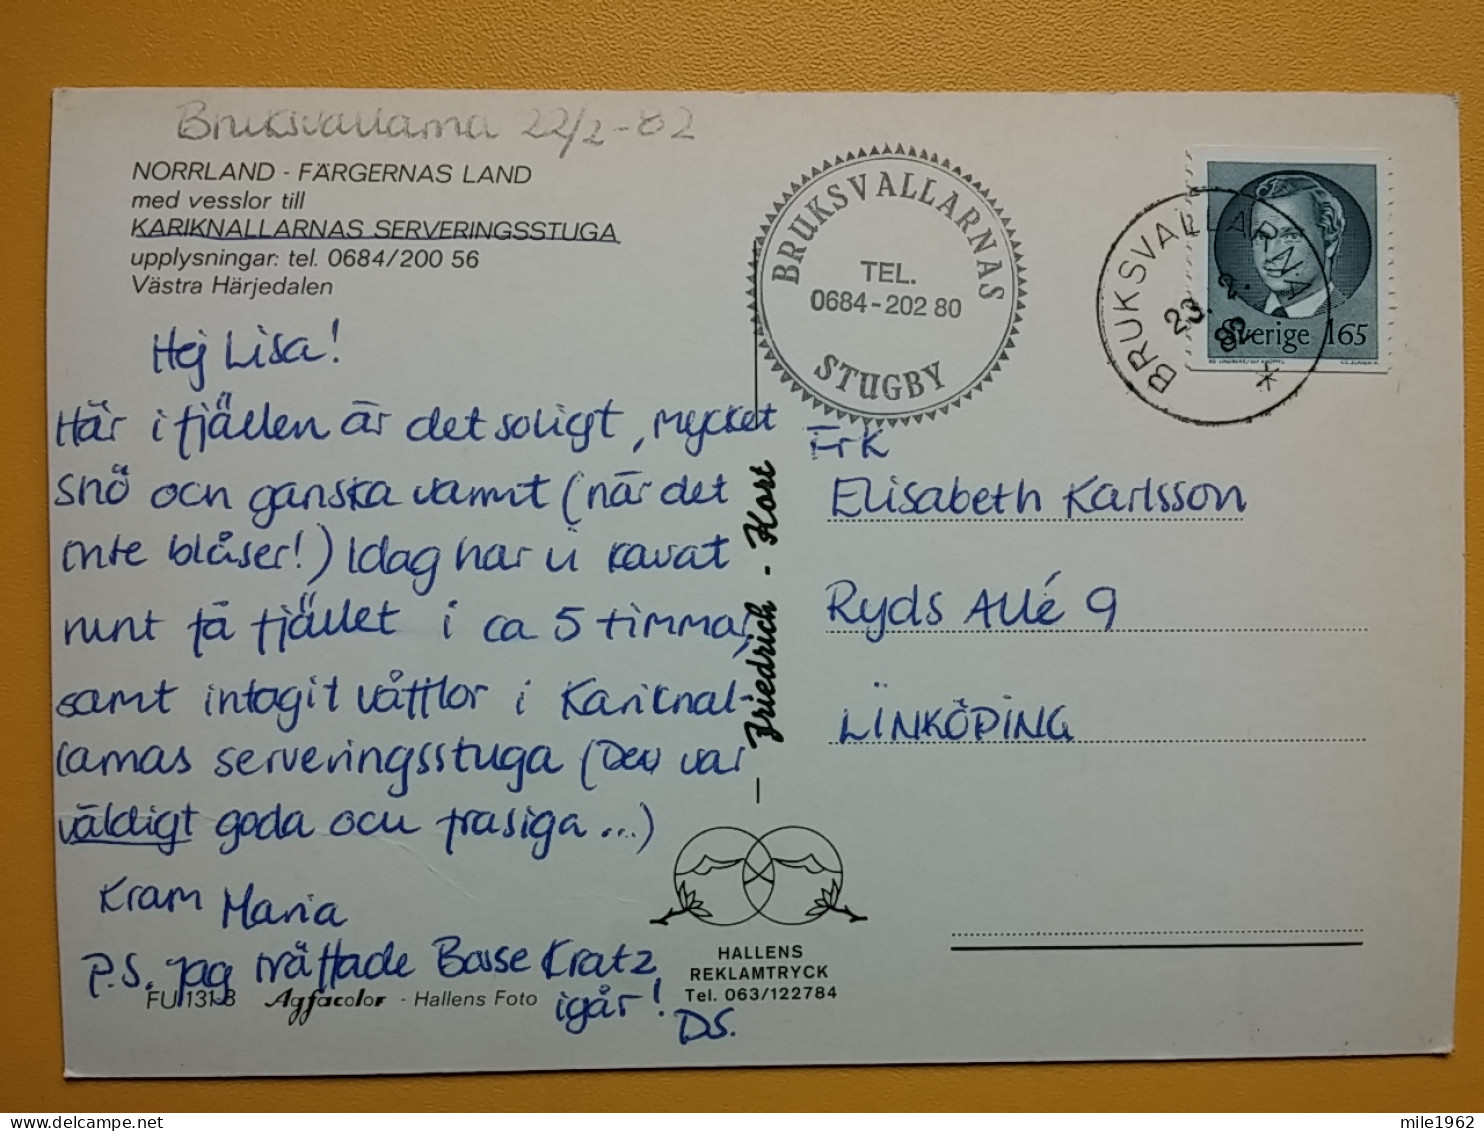 Bruksvallarna 22/2-82
NORRLAND - FÄRGERNAS LAND
med vesslor till
KARIKNALLARNAS SERVERINGSSTUGA
upplysningar: tel. 0684/200 56
Västra Härjedalen
Hej Lisa!
Här i fjällen är det soligt, mycket
snö och ganska varmt (när det
inte blåser!) Idag har vi kavat
runt på fjället i ca 5 timmar,
samt intagit våfflor i Kariknal-
larnas serveringsstuga (Dev var
väldigt goda och frasiga...)
Kram Maria
P.S. Jag träffade Bosse Kratz
igår! DS.
FU 131 8 Agfacolor - Hallens Foto
BRUKSVALLARNAS
TEL.
0684-202 80
STUGBY
BRUKSVALLARNA
23. 2. 82
*
Sverige 165
Frk
Elisabeth Karlsson
Ryds Allé 9
LINKÖPING
Friedrich - Kort
HALLENS
REKLAMTRYCK
Tel. 063/122784
mile1962